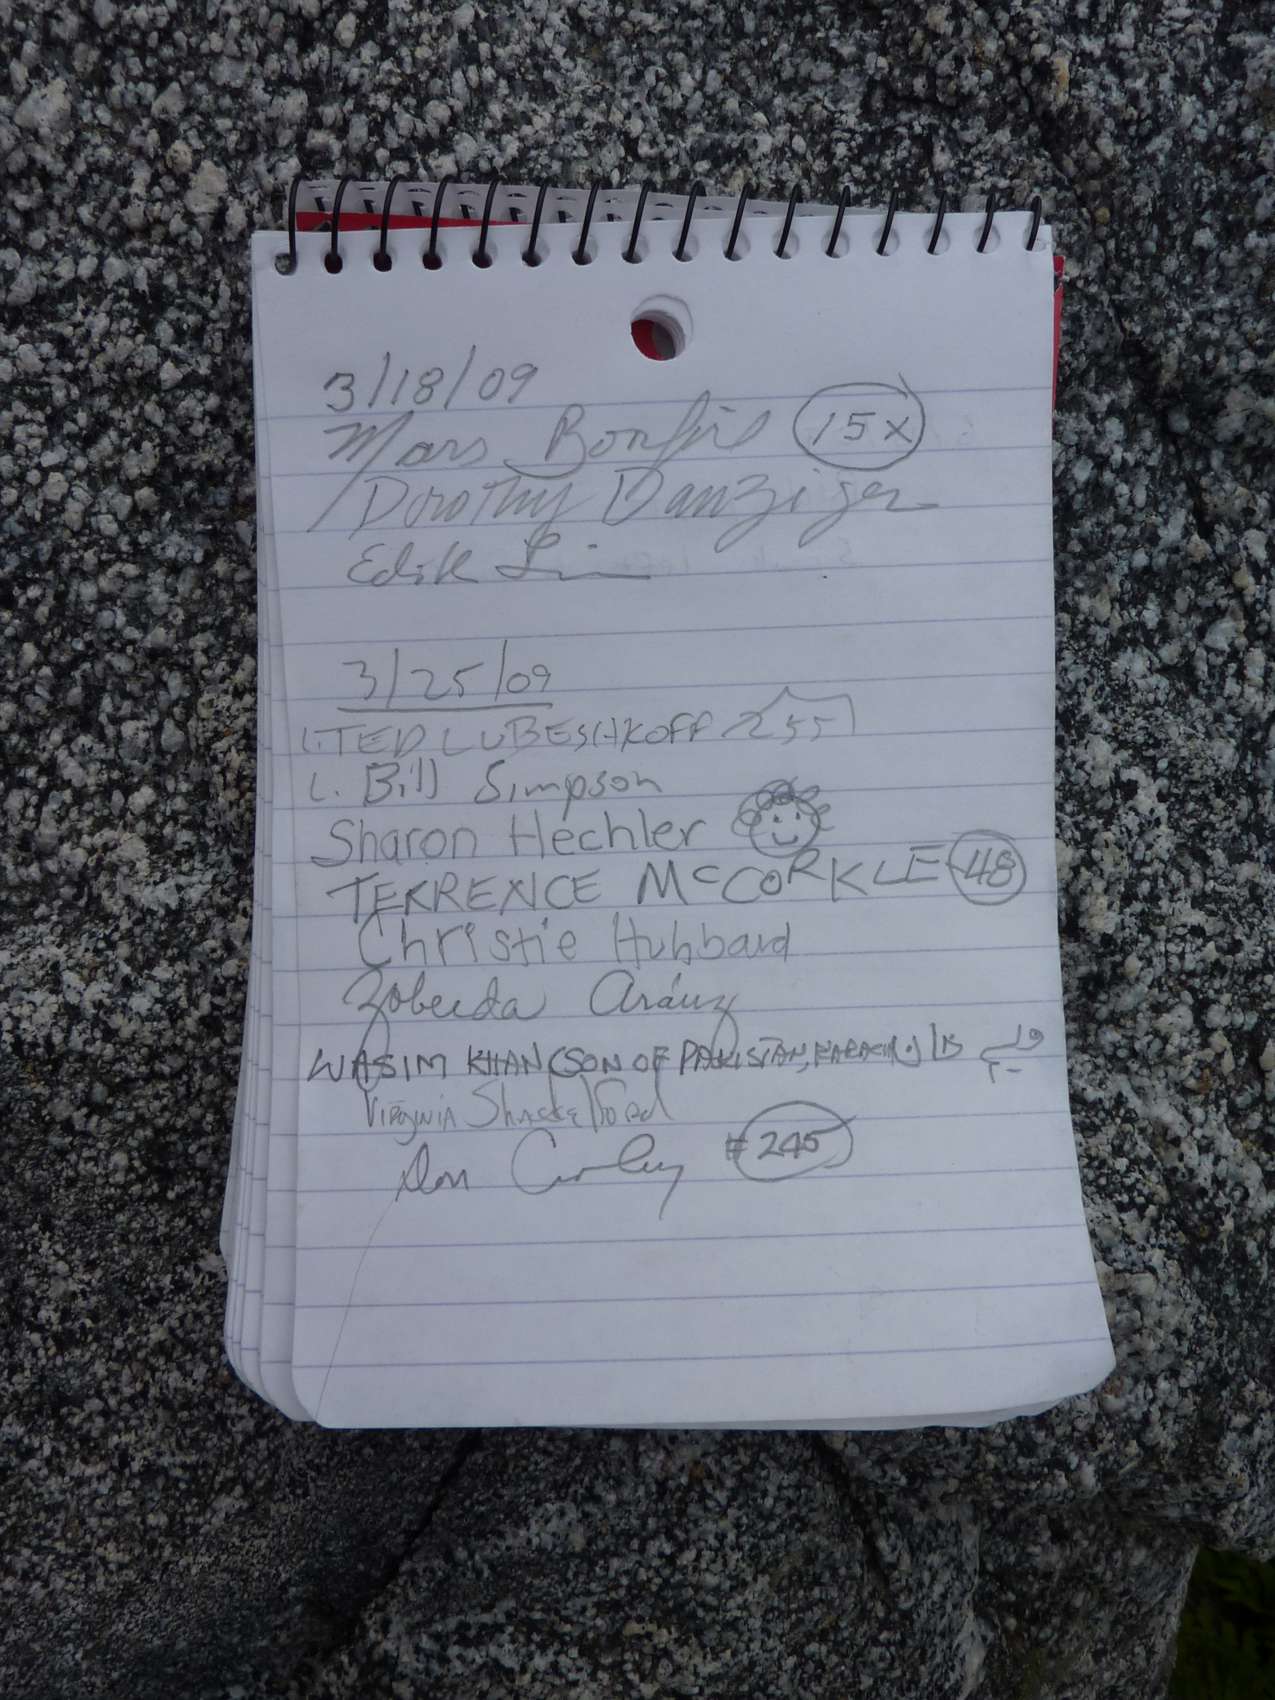 3/18/09
Mars Bonfire 15x
Dorothy Danziger
Edik Lin
3/25/09
L. TED LUBESHKOFF 255
L. Bill Simpson
Sharon Hechler
TERRENCE McCORKLE 48
Christie Hubbard
Zobeida Aráuz
WASIM KHAN (SON OF PAKISTAN, KARACHI)
VIRGINIA Shackelford
Don Cornley #245